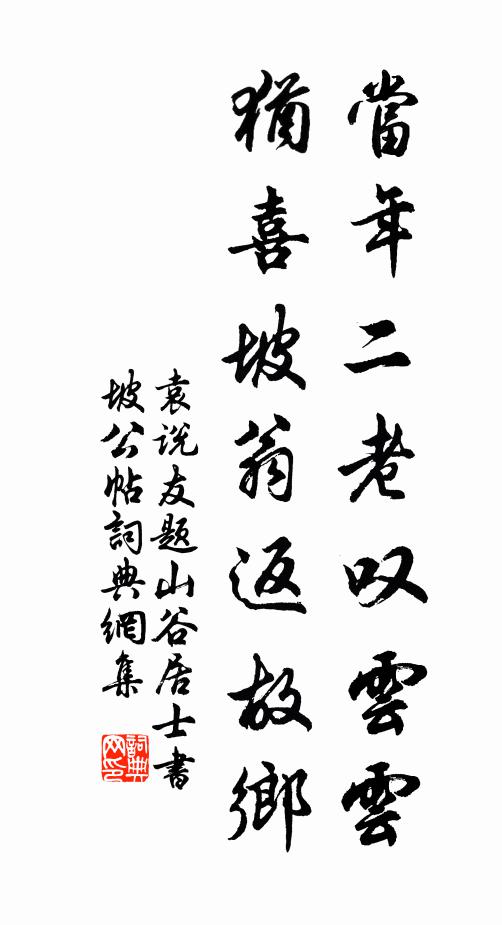 當年二老叹雲雲
猶喜坡翁返故鄉
袁说友题山谷居士書
坡公帖詞典網集
詞典网印